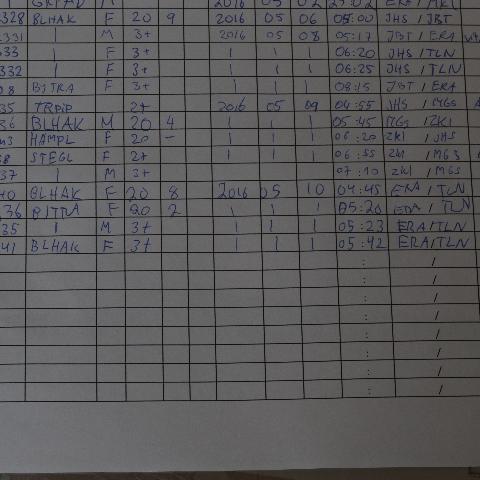 GRPAD M 2016 05 02 23:02 ERA / MKL
328 BLHAK F 20 9 2016 05 06 05:00 JHS / JBT
331 | M 3+ 2016 05 08 05:17 JBT / ERA
333 | F 3+ | | | 06:20 JHS / TLN
332 | F 3+ | | | 06:25 JHS / TLN
08 BJTRA F 3+ | | | 08:15 JBT / ERA
35 TRPIP 2+ 2016 05 09 04:55 JHS / MGS
36 BLHAK M 20 4 | | | 05:45 MGS / ZKI
HAMPL F 20 - | | | 06:20 ZKI / JHS
38 STEGL F 2+ | | | 06:55 ZKI / MGS
37 | M 3+ 07:10 ZKI / MGS
40 BLHAK F 20 8 2016 05 10 04:45 ERA / TLN
36 BJTRA F 20 2 | | | 05:20 ERA / TLN
35 | M 3+ | | | 05:23 ERA/TLN
41 BLHAK F 3+ | | | 05:42 ERA/TLN
: /
: /
: /
: /
: /
: /
: /
: /